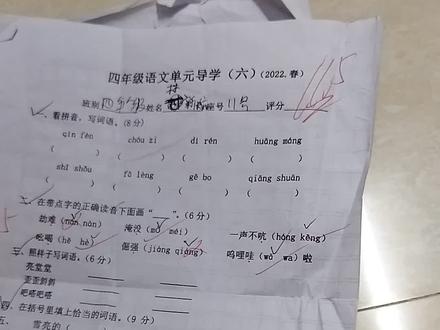 四年级语文单元导学（六）（2022.春）
班别 四年级 姓名 座号 11号 评分
一、看拼音，写词语。（8分）
qín fèn chóu zi dí rén huāng máng
（ ） （ ） （ ） （ ）
shī shǒu fú léng gē bo qiāng shuān
（ ） （ ） （ ） （ ）
二、在带点字的正确读音下面画“___”。（6分）
劫难（nán nàn） 淹没（mò méi） 一声不吭（hóng kēng）
吆喝（hē hè） 倔强（jiàng qiáng） 呜哩哇（wā wa）啦
三、照样子写词语。（6分）
亮堂堂
歪歪斜斜
吧嗒吧嗒
四、在括号里填上恰当的词语。（9分）
五、 雪亮的（